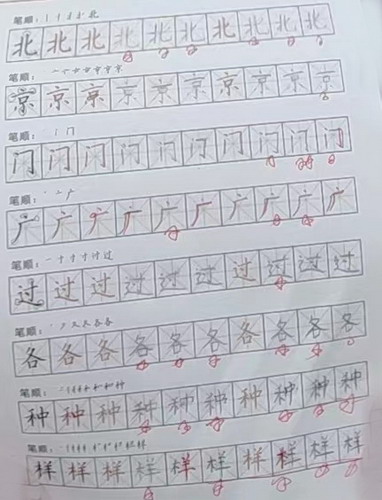 笔顺：
北北北北北北北北北北
笔顺：
京京京京京京京京京京
笔顺：丨门
门门门门门门门门门门
笔顺：丶亠广
广广广广广广广广广广
笔顺：一寸寸寸讨过
过过过过过过过过过过
笔顺：
各各各各各各各各各各
笔顺：
种种种种种种种种种种
笔顺：
样样样样样样样样样样